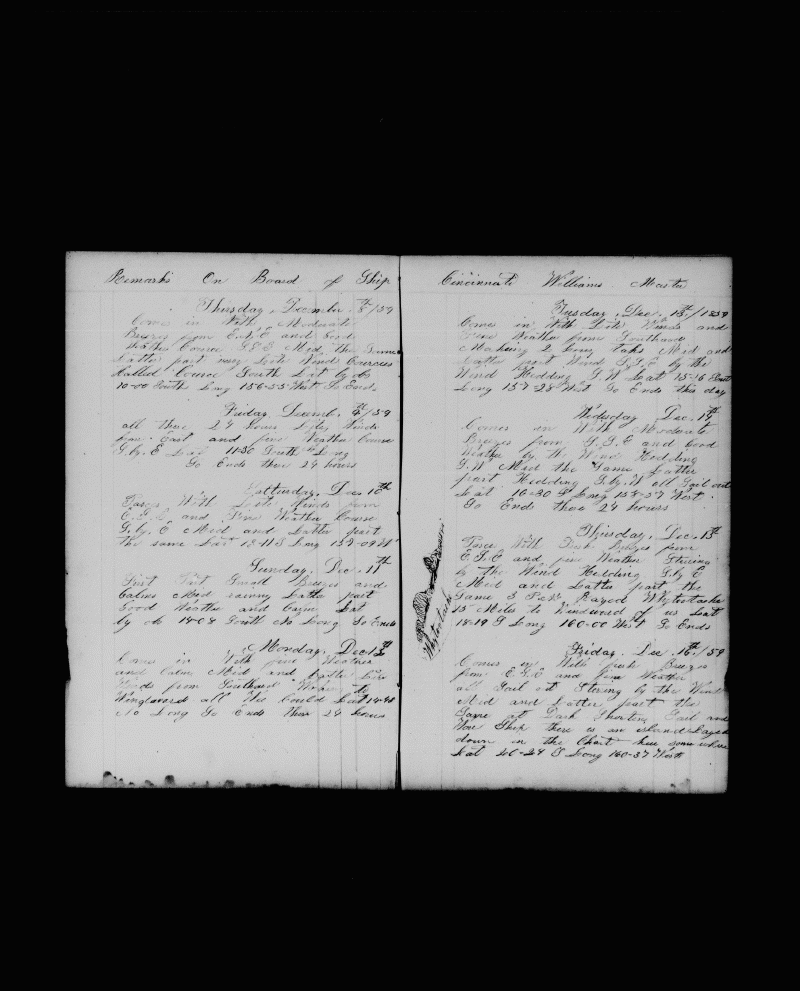 Remarks On Board of Ship
Thursday, December 8th/59
Comes in With Moderate
Breezes from and Good
Course S.S.E Mid, the Same
Latter part Light Winds Exercises
Course South Lat by ob
10-00 South Long 156-55 West So Ends
Friday, Decemb. 9th/59
all these 24 hours Winds
from East and fine Weather Course
S. by. E Lat 11-50 South Long
So Ends these 24 hours
Satturday, Dec 10th
With Light Winds from
E.S.E and fine Weather Course
S. by. E Mid and Latter part
the same Lat 13-11 S Long 157-09 W
Sunday, Dec 11th
First Part Small Breezes and
Calms Mid rainy Latter part
Good Weather and Calm Lat
by ob 14-08 South No Long So Ends
Monday, Dec 12th
Comes in With fine Weather
and Calm Mid and Latter
Winds from Southard
all We Could Lat 14-48
No Long So Ends these 24 hours
Cincinnati Williams Master
Tuesday, Dec. 13th/1859
Comes in With Light Winds and
Fine Weather from Southard
Making 2 Long Taks Mid and
Latter part Wind S.S.E by the
Wind Hedding S.W Lat 15-16 South
Long 157-28 West So Ends this day
Wedsday Dec. 14th
Comes in With Moderate
Breezes from S.S.E and Good
Weather by the Wind Hedding
S.W Mid the Same Latter
part Hedding S.by.W all Sail out
Lat 16-30 S Long 158-37 West
So Ends these 24 hours
Thirsday, Dec. 15th
With Fresh Breezes from
E.S.E and fine Weather Stiring
by the Wind Hedding S.by E
Mid and Latter part the
Same 3 P.M. Rayed Whytootacke
15 Miles to Windward of us Lat
18-19 S Long 160-00 West So Ends
Whytootack
Friday, Dec. 16th/59
Comes in With fresh Breezes
from E.S.E and fine Weather
all Sail out Stiring by the Wind
Mid and Latter part the
Same at Dark Shorten Sail and
Ship there is an island Layed
down in the Chart here some where
Lat 20-24 S Long 160-37 West